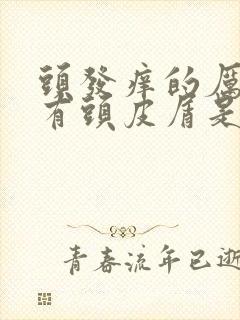 頭發痒的厲
有頭皮屑是
青春流年已逝